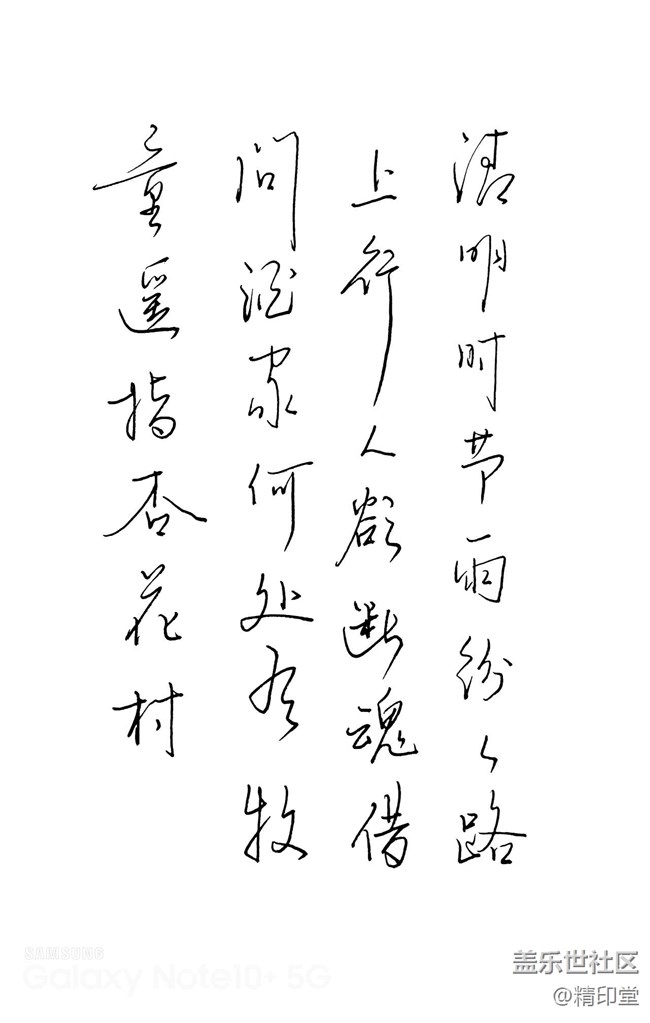 清明时节雨纷々路
上行人欲断魂借
问酒家何处有牧
童遥指杏花村
SAMSUNG
Galaxy Note10+ 5G
盖乐世社区
@精印堂